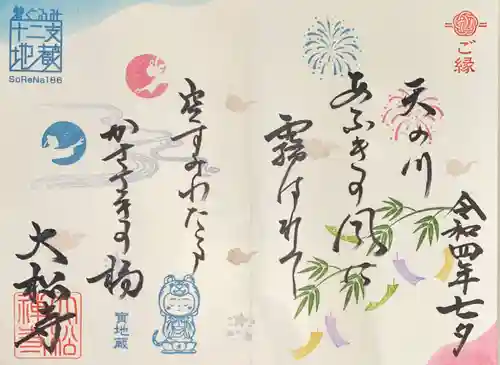 ご縁
令和四年七夕
天の川
あふきの風に
霧はれて
空すみわたる
かささきの橋
大松寺
寅地蔵
着ぐるみ
十二支
地蔵
SoReNa166